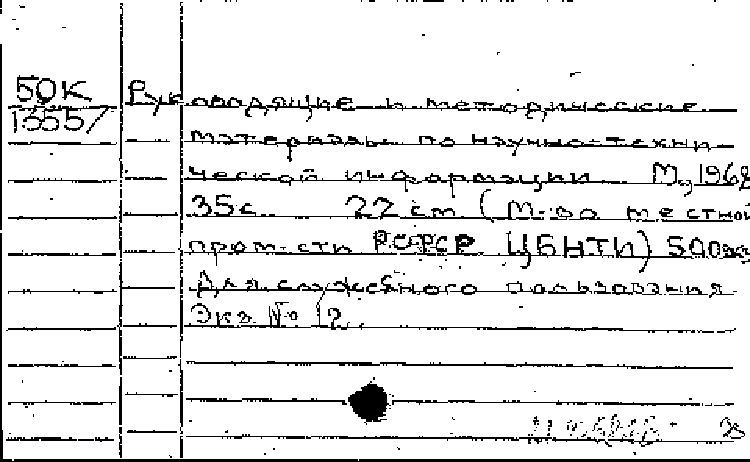 50К Руководящие и методические
13557 материалы по научно-техни
ческой информации. М., 1968
35с. 22 см (М-во местной
пром-сти РСФСР ЦБНТИ) 500экз
Для служебного пользования
Экз № 12.